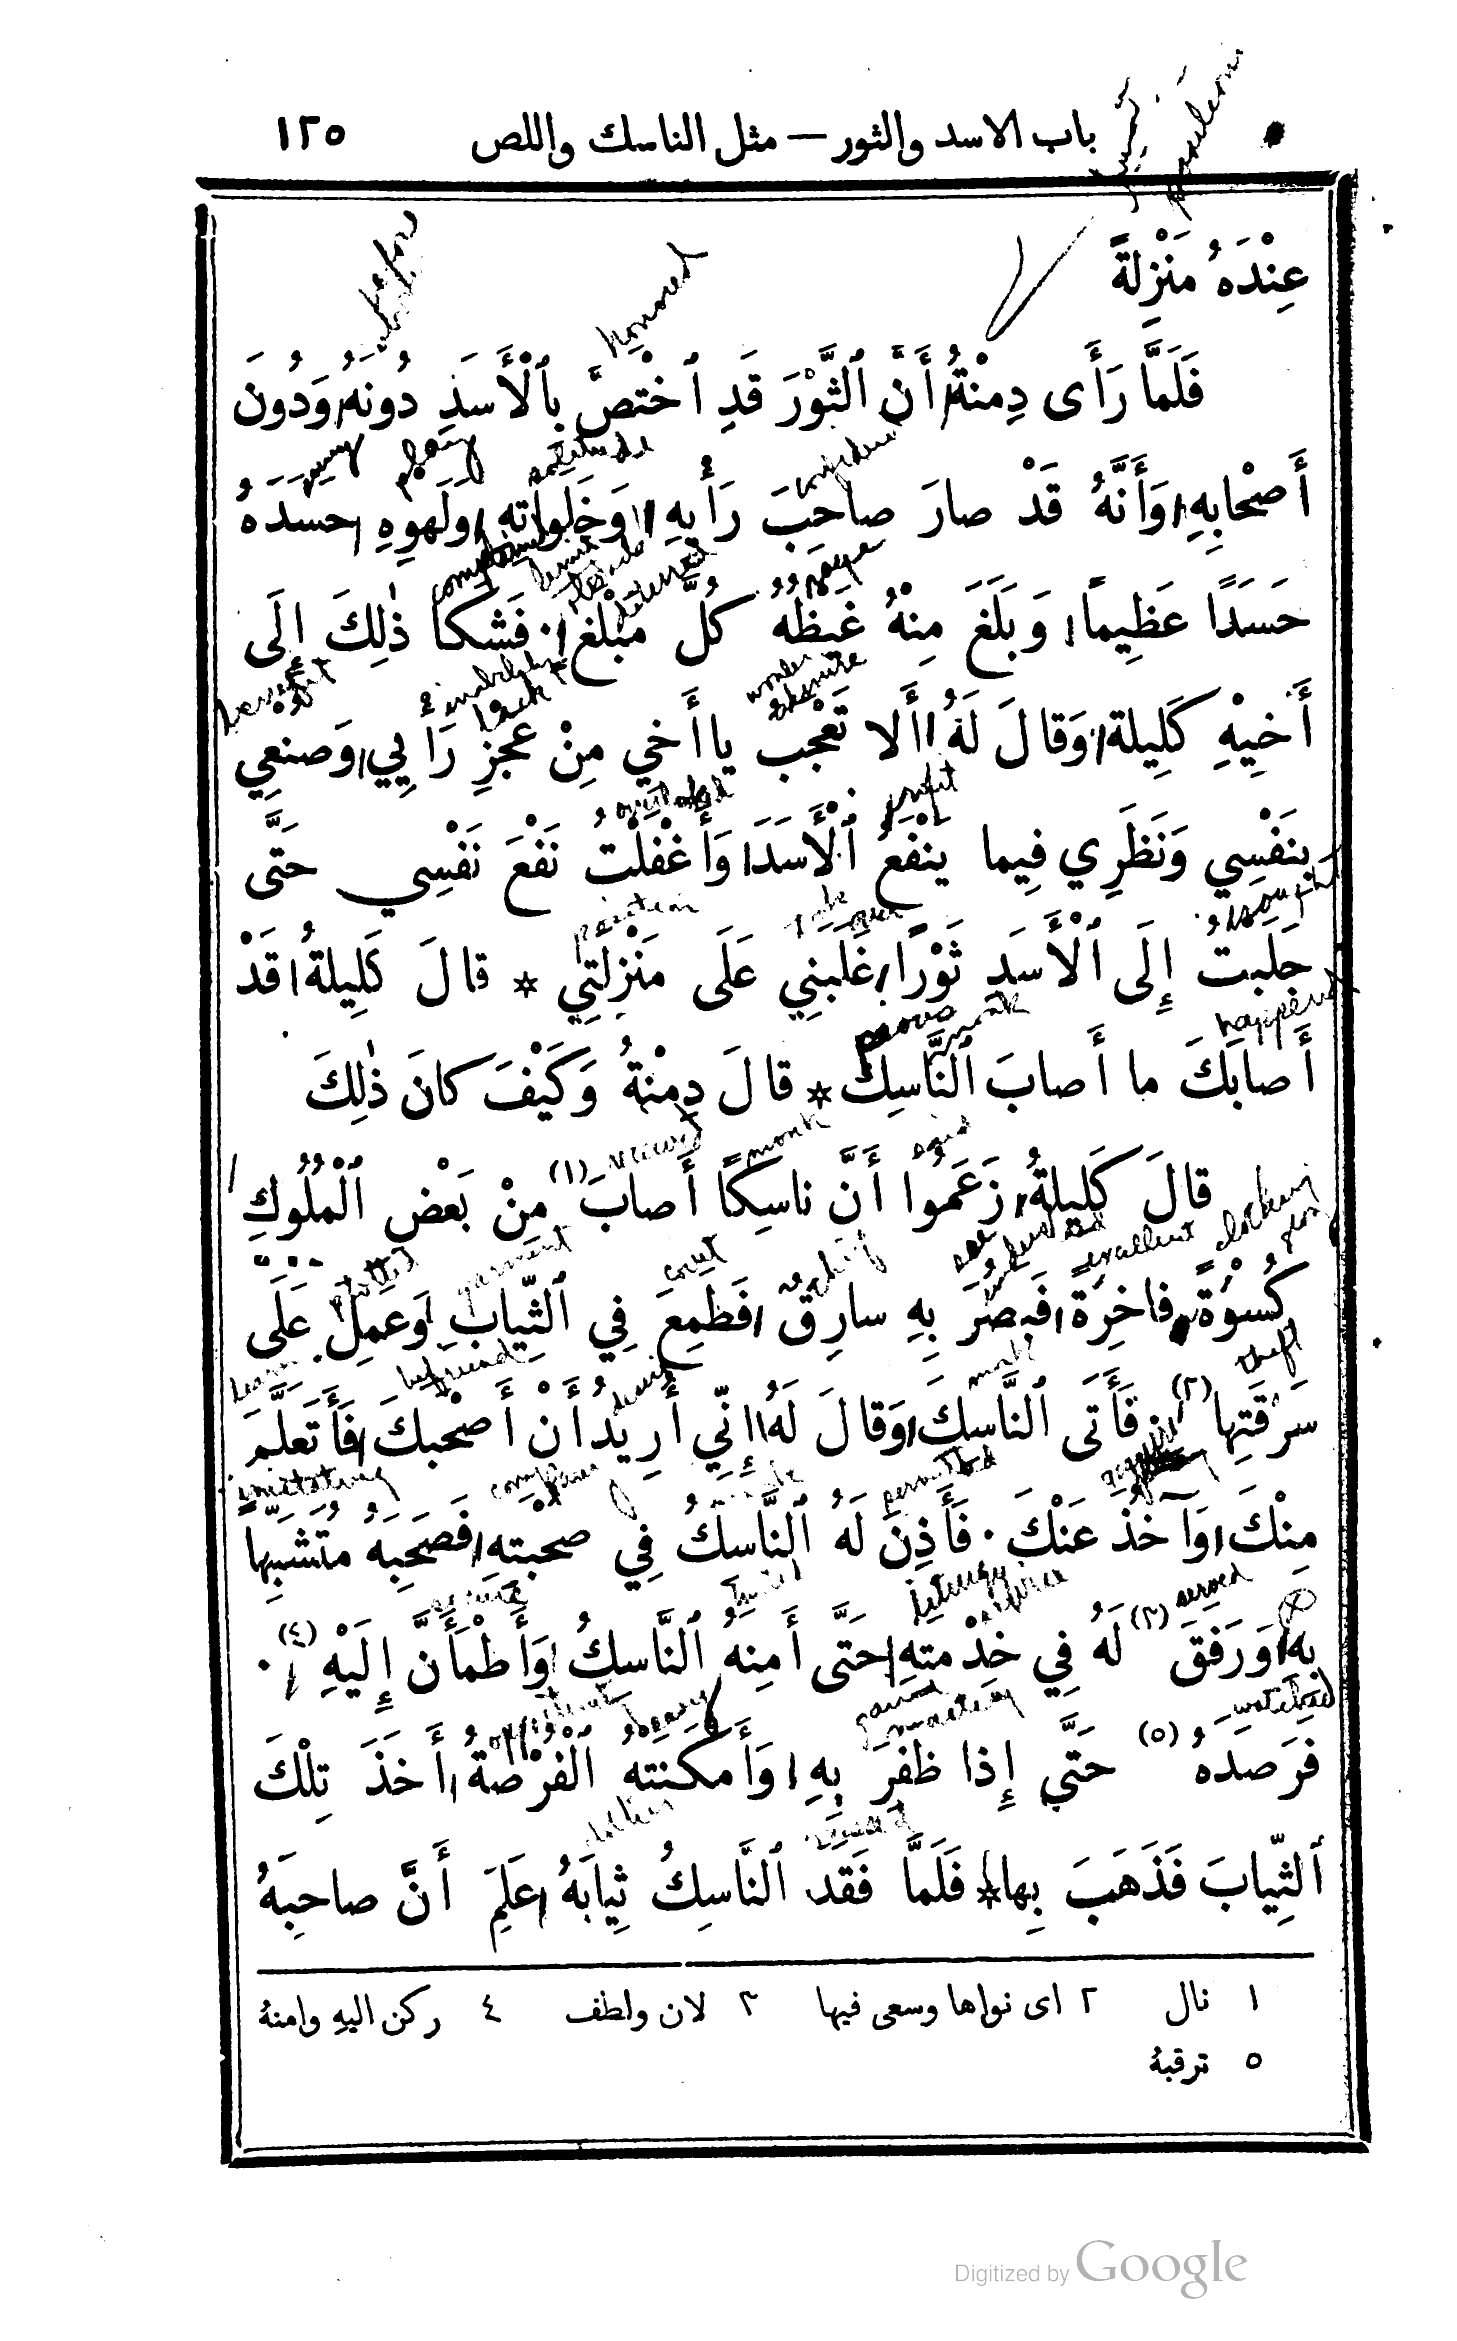 باب الاسد والثور — مثل الناسك واللص ١٢٥
عِنْدَهُ مَنْزِلةً
honored
فَلَمَّا رَأَى دِمنْةُ أَنَّ ٱلثَّوْرَ قَدِ ٱخْتصَّ بِٱلْأَسَدِ دُونَهُ وَدُونَ
أَصْحابِهِ وَأَنَّهُ قَدْ صارَ صاحبَ رَأْيِهِ وَخَلَواتهِ وَلَهوِهِ حسدَهُ
حَسَدًا عَظِيماً وَبَلَغَ مِنْهُ غَيظُهُ كُلَّ مبْلغ. فَشكا ذٰلِكَ إِلَى
أَخيْهِ كَلِيلة وَقالَ لَهُ أَلا تَعْجب يا أَخي مِنْ عجزِ رَأْيِي وَصنعِي
بِنَفْسِي وَنَظَرِي فِيما يَنْفَعُ ٱلْأَسَدَ وَأَغْفلْتُ نَفْعَ نَفْسِي حَتَّى
profit
جلَبتُ إِلَى ٱلْأَسَدِ ثَوْرًا غَلَبَنِي عَلَى مَنْزِلَتِي * قالَ كَلِيلةُ قَدْ
happened
أَصابَكَ ما أَصابَ ٱلنَّاسِكَ * قالَ دِمنْةُ وَكَيْفَ كانَ ذٰلِكَ
monk said
قالَ كَلِيلةُ زَعَمُوا أَنَّ ناسِكًا أَصابَ (١) مِنْ بَعْضِ ٱلْمُلُوكِ
garment covet excellent clothing
كُسْوَةً فاخِرَةً فَبصُرَ بِهِ سارِقٌ فَطَمِعَ فِي ٱلثِّيابِ وَعَمِلَ عَلَى
befriend theft
سَرْقَتِها (٢). فَأَتَى ٱلنَّاسِكَ وَقالَ لَهُ إِنِّي أُرِيدُ أَنْ أَصْحبكَ فَأَتَعَلَّمَ
imitating permitted
مِنْكَ وَآخُذَ عَنْكَ. فَأَذِنَ لَهُ ٱلنَّاسكُ فِي صحْبتِهِ فَصَحِبَهُ مُتَشَبِّهًا
served
بِهِ وَرَفِقَ (٣) لَهُ فِي خِدْمتِهِ حَتَّى أَمِنَهُ ٱلنَّاسِكُ وَٱطْمَأَنَّ إِلَيْهِ (٤).
watched
فرَصدَهُ (٥) حَتَّى إِذا ظفِرَ بِهِ وَأَمكَنتهُ ٱلْفُرْصةُ أَخَذَ تِلْكَ
clothes
ٱلثِّيابَ فَذَهَبَ بِها * فَلَمَّا فَقدَ ٱلنَّاسِكُ ثِيابَهُ علِمَ أَنَّ صاحبَهُ
١ نال ٢ اى نواها وسعى فيها ٣ لان ولطف ٤ ركن اليهِ وامنهُ
٥ ترقبهُ
Digitized by Google